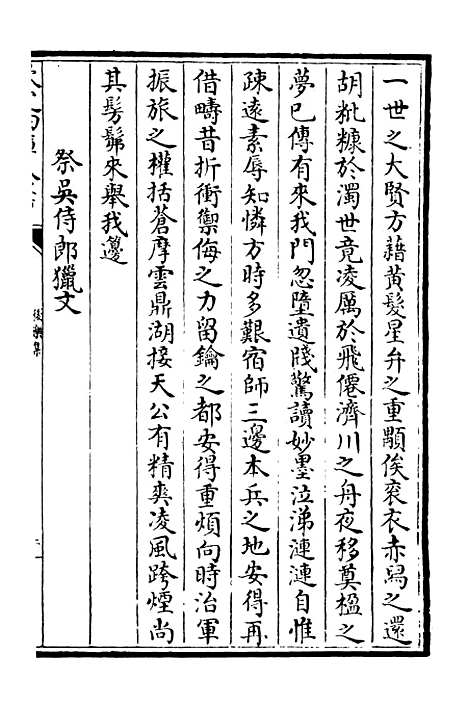 一世之大賢方藉黃髮星弁之重顒俟袞衣赤舄之還
胡粃糠於濁世竟凌厲於飛僊濟川之舟夜移奠楹之
夢已傳有來我門忽墮遺牋驚讀妙墨泣涕漣漣自惟
疎遠素辱知憐方時多艱宿師三邊本兵之地安得再
借疇昔折衝禦侮之力留鑰之都安得重煩向時治軍
振旅之權括蒼摩雲鼎湖接天公有精爽凌風跨煙尚
其髣髴來舉我籩
祭吳侍郎獵文
後樂集